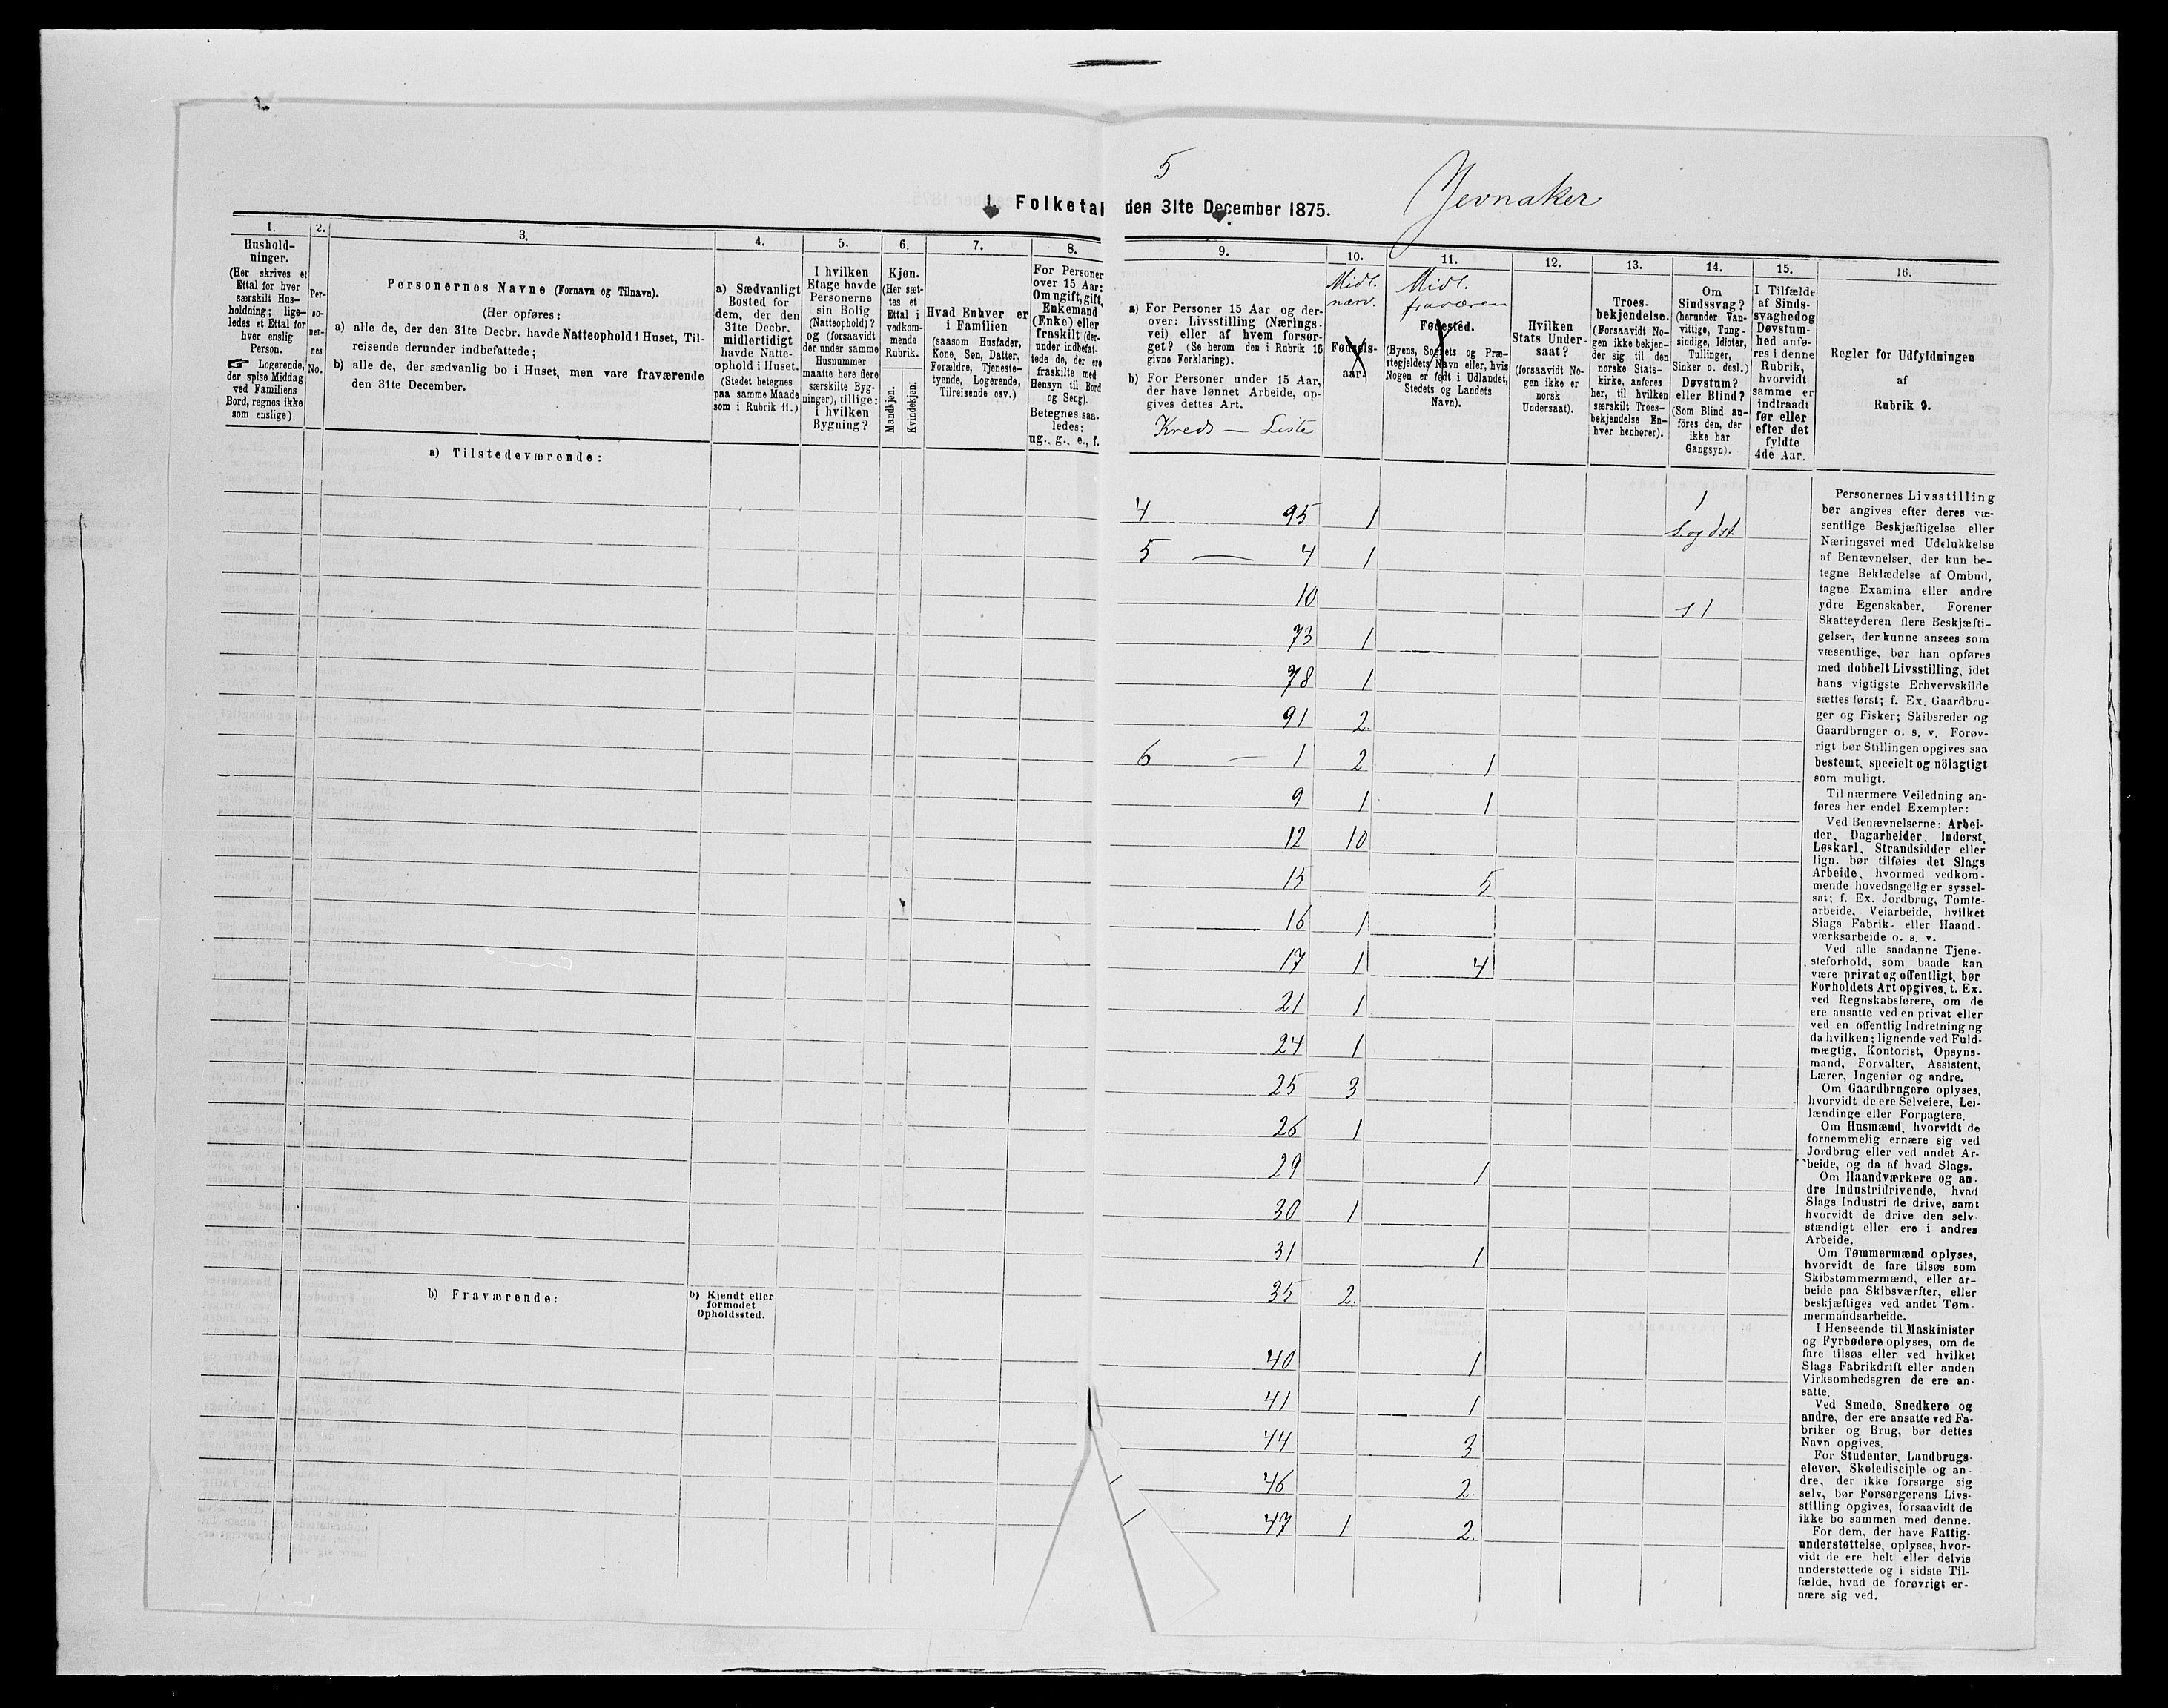 5
Jevnaker
1. Folketal den 31te December 1875.
1.
Hushold-
ninger.
(Her skrives et
Ettal for hver
særskilt Hus-
holdning; lige-
ledes et Ettal for
hver enslig
Person.
☞ Logerende,
der spise Middag
ved Familiens
Bord, regnes ikke
som enslige).
2.
Per-
so-
ner-
nes
No.
3.
Personernes Navne (Fornavn og Tilnavn).
(Her opføres:
a) alle de, der den 31te Decbr. havde Natteophold i Huset, Til-
reisende derunder indbefattede;
b) alle de, der sædvanlig bo i Huset, men vare fraværende
den 31te December.
4.
a) Sædvanligt
Bosted for
dem, der den
31te Decbr.
midlertidigt
havde Natte-
ophold i Huset.
(Stedet betegnes
paa samme Maade
som i Rubrik 11.)
5.
I hvilken
Etage havde
Personerne
sin Bolig
(Natteophold)?
og (forsaavidt
der under samme
Husnummer
maatte høre flere
særskilte Byg-
ninger), tillige:
i hvilken
Bygning?
6.
Kjøn.
(Her sæt-
tes et
Ettal i
vedkom-
mende
Rubrik.
Mandkjøn.
Kvindekjøn.
7.
Hvad Enhver er
i Familien
(saasom Husfader,
Kone, Søn, Datter,
Forældre, Tjeneste-
tyende, Logerende,
Tilreisende osv.)
8.
For Personer
over 15 Aar:
Om ugift, gift,
Enkemand
(Enke) eller
fraskilt (der-
under indbefat-
tede de, der ere
fraskilte med
Hensyn til Bord
og Seng).
Betegnes saa-
ledes:
ug., g., e., f.
9.
a) For Personer 15 Aar og der-
over: Livsstilling (Nærings-
vei) eller af hvem forsør-
get? (Se herom den i Rubrik 16
givne Forklaring).
b) For Personer under 15 Aar,
der have lønnet Arbeide, op-
gives dettes Art.
Kreds — Liste
10.
Midl.
nærv.
Fødsels-
aar.
11.
Midl.
fraværen
Fødested.
(Byens, Sognets og Præ-
stegjeldets Navn eller, hvis
Nogen er født i Udlandet,
Stedets og Landets
Navn).
12.
Hvilken
Stats Under-
saat?
(forsaavidt No-
gen ikke er
norsk
Undersaat).
13.
Troes-
bekjendelse.
(Forsaavidt No-
gen ikke bekjen-
der sig til den
norske Stats-
kirke, anføres
her, til hvilken
særskilt Troes-
bekjendelse En-
hver henhører).
14.
Om
Sindssvag?
(herunder Van-
vittige, Tung-
sindige, Idioter,
Tullinger,
Sinker o. desl.)
Døvstum?
eller Blind?
(Som Blind an-
føres den, der
ikke har
Gangsyn).
15.
I Tilfælde
af Sinds-
svaghed og
Døvstum-
hed anfø-
res i denne
Rubrik,
hvorvidt
samme er
indtraadt
før eller
efter det
fyldte
4de Aar.
16.
Regler for Udfyldningen
af
Rubrik 9.
a) Tilstedeværende:
4 95 1 1
S. og dst.
5 — 4 1
10 s 1
73 1
78 1
91 2.
6 — 1 2 1
9 1 1
12 10
15 5
16 1
17 1 4
21 1
24 1
25 3
26 1
29 1
30 1
31 1
35 2.
b) Fraværende:
b) Kjendt eller
formodet
Opholdssted.
40 1
41 1
44 3
46 2.
47 1 2.
Personernes Livsstilling
bør angives efter deres væ-
sentlige Beskjæftigelse eller
Næringsvei med Udelukkelse
af Benævnelser, der kun be-
tegne Beklædelse af Ombud,
tagne Examina eller andre
ydre Egenskaber. Forener
Skatteyderen flere Beskjæfti-
gelser, der kunne ansees som
væsentlige, bør han opføres
med dobbelt Livsstilling, idet
hans vigtigste Erhvervskilde
sættes først; f. Ex. Gaardbru-
ger og Fisker; Skibsreder og
Gaardbruger o. s. v. Forøv-
rigt bør Stillingen opgives saa
bestemt, specielt og nöiagtigt
som muligt.
Til nærmere Veiledning an-
føres her endel Exempler:
Ved Benævnelserne: Arbei-
der, Dagarbeider, Inderst,
Løskarl, Strandsidder eller
lign. bør tilføies det Slags
Arbeide, hvormed vedkom-
mende hovedsagelig er syssel-
sat; f. Ex. Jordbrug, Tomte-
arbeide, Veiarbeide, hvilket
Slags Fabrik- eller Haand-
værksarbeide o. s. v.
Ved alle saadanne Tjene-
steforhold, som baade kan
være privat og offentligt, bør
Forholdets Art opgives, t. Ex.
ved Regnskabsførere, om de
ere ansatte ved en privat eller
ved en offentlig Indretning og
da hvilken; lignende ved Fuld-
mægtig, Kontorist, Opsyns-
mand, Forvalter, Assistent,
Lærer, Ingeniør og andre.
Om Gaardbrugere oplyses,
hvorvidt de ere Selveiere, Lei-
lændinge eller Forpagtere.
Om Husmænd, hvorvidt de
fornemmelig ernære sig ved
Jordbrug eller ved andet Ar-
beide, og da af hvad Slags.
Om Haandværkere og an-
dre Industridrivende, hvad
Slags Industri de drive, samt
hvorvidt de drive den selv-
stændigt eller ere i andres
Arbeide.
Om Tømmermænd oplyses,
hvorvidt de fare tilsøs som
Skibstømmermænd, eller ar-
beide paa Skibsværfter, eller
beskjæftiges ved andet Tøm-
mermandsarbeide.
I Henseende til Maskinister
og Fyrbødere oplyses, om de
fare tilsøs eller ved hvilket
Slags Fabrikdrift eller anden
Virksomhedsgren de ere an-
satte.
Ved Smede, Snedkere og
andre, der ere ansatte ved Fa-
briker og Brug, bør dettes
Navn opgives.
For Studenter, Landbrugs-
elever, Skoledisciple og an-
dre, der ikke forsørge sig
selv, bør Forsørgerens Livs-
stilling opgives, forsaavidt de
ikke bo sammen med denne.
For dem, der have Fattig-
understøttelse, oplyses, hvor-
vidt de ere helt eller delvis
understøttede og i sidste Til-
fælde, hvad de forøvrigt er-
nære sig ved.